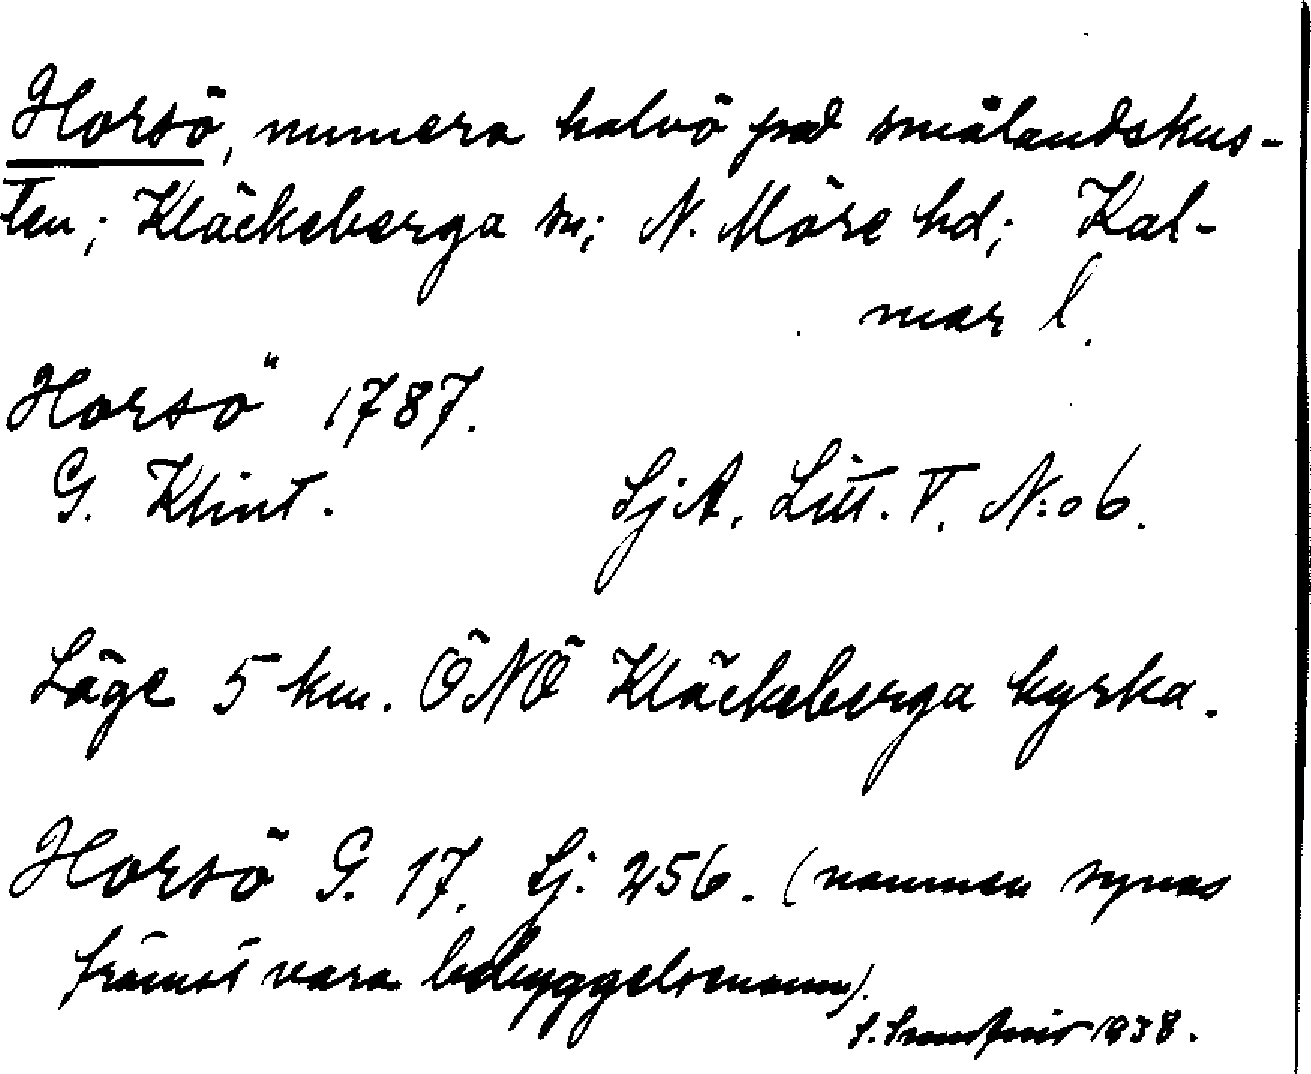 Horsö, numera halvö på smålandskus-
ten; Kläckeberga sn; N. Möre hd; Kal-
mar l.
Horsö 1787.
G. Klint. Sj.A. Litt. V. N:o 6.
Läge 5 km. ÖNÖ Kläckeberga kyrka.
Horsö G. 17. Sj. 256. (namnen synas
främst vara bebyggelsenamn).
1938.